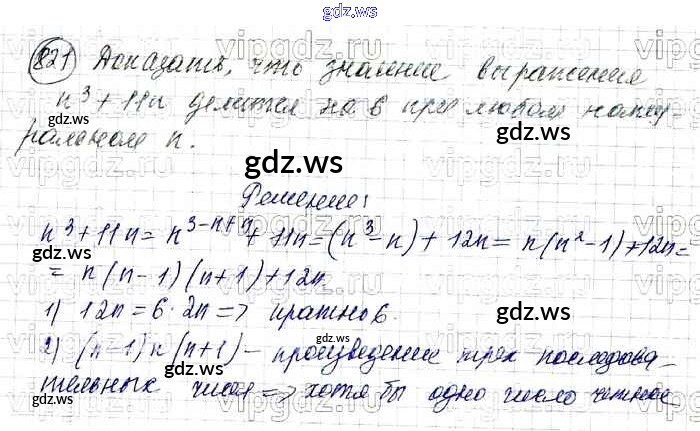 gdz.ws
821 Доказать, что значение выражения
n³ + 11n делится на 6 при любом нату-
ральном n.
gdz.ws
gdz.ws
Решение:
n³ + 11n = n³⁻ⁿ⁺ⁿ + 11n = (n³ - n) + 12n = n(n² - 1) + 12n =
= n(n - 1)(n + 1) + 12n.
1) 12n = 6 · 2n => кратно 6. gdz.ws
2) (n - 1)n(n + 1) - произведение трех последова-
тельных чисел => хотя бы одно число четное
gdz.ws
gdz.ws